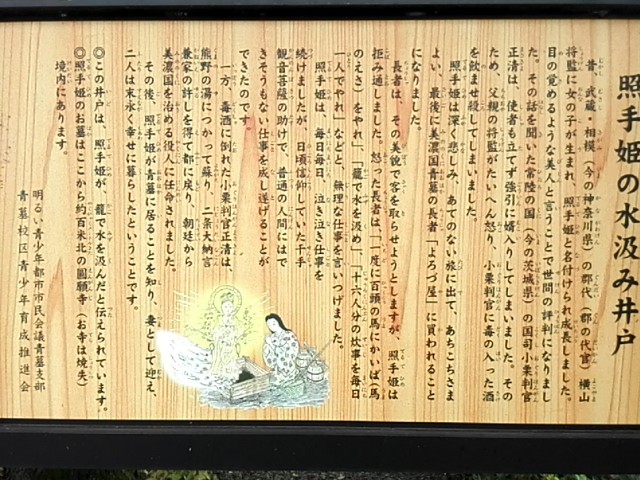 照手姫の水汲み井戸
昔、武蔵・相模(今の神奈川県)の郡代(郡の代官)横山
将監に女の子が生まれ、照手姫と名付けられ成長しました。
目の覚めるような美人と言うことで世間の評判になりまし
た。その話を聞いた常陸の国(今の茨城県)の国司小栗判官
正清は、使者も立てず強引に婿入りしてしまいました。その
ため、父親の将監がたいへん怒り、小栗判官に毒の入った酒
を飲ませ殺してしまいました。
照手姫は深く悲しみ、あてのない旅に出て、あちこちさま
よい、最後に美濃国青墓の長者「よろづ屋」に買われること
になりました。
長者は、その美貌で客を取らせようとしますが、照手姫は
拒み通しました。怒った長者は、「一度に百頭の馬にかいば(馬
のえさ)をやれ」、「籠で水を汲め」、「十六人分の炊事を毎日
一人でやれ」などと、無理な仕事を言いつけました。
照手姫は、毎日毎日、泣き泣き仕事を
続けましたが、日頃信仰していた千手
観音菩薩の助けで、普通の人間にはで
きそうもない仕事を成し遂げることが
できたのです。
一方、毒酒に倒れた小栗判官正清は、
熊野の湯につかって蘇り、二条大納言
兼家の許しを得て都に戻り、朝廷から
美濃国を治める役人に任命されました。
その後、照手姫が青墓に居ることを知り、妻として迎え、
二人は末永く幸せに暮らしたということです。
◎この井戸は、照手姫が、籠で水を汲んだと伝えられています。
◎照手姫のお墓はここから約百米北の圓願寺(お寺は焼失)
境内にあります。
明るい青少年都市市民会議青墓支部
青墓校区青少年育成推進会